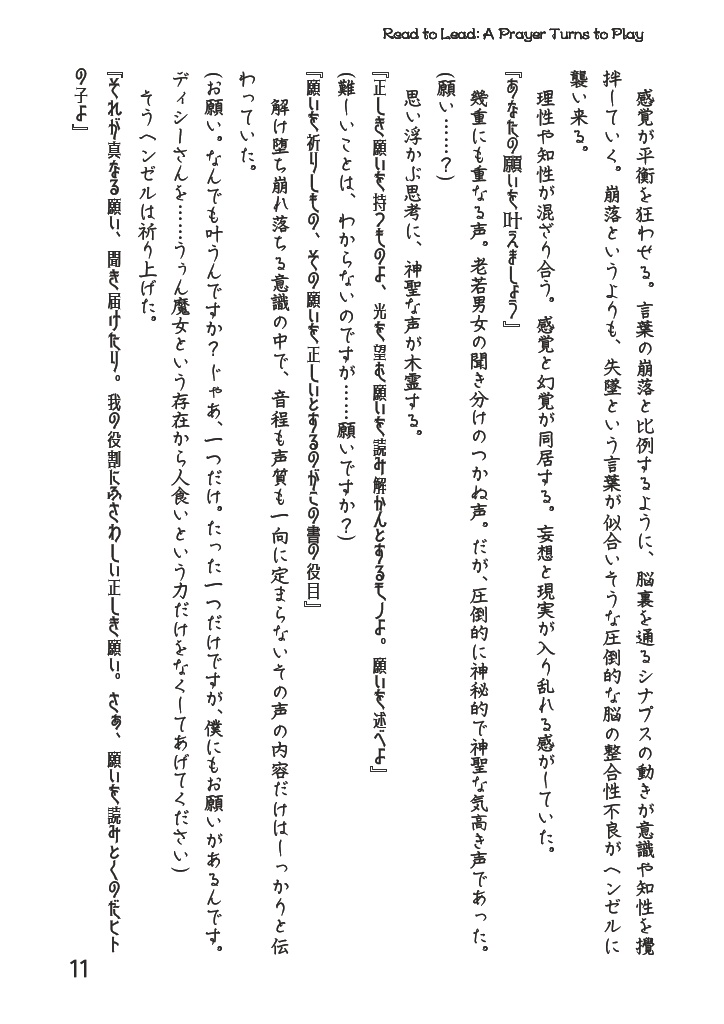 Read to Lead: A Prayer Turns to Play
感覚が平衡を狂わせる。言葉の崩落と比例するように、脳裏を通るシナプスの動きが意識や知性を攪
拌していく。崩落というよりも、失墜という言葉が似合いそうな圧倒的な脳の整合性不良がヘンゼルに
襲い来る。
理性や知性が混ざり合う。感覚と幻覚が同居する。妄想と現実が入り乱れる感がしていた。
『あなたの願いを叶えましょう』
幾重にも重なる声。老若男女の聞き分けのつかね声。だが、圧倒的に神秘的で神聖な気高き声であった。
(願い……？)
思い浮かぶ思考に、神聖な声が木霊する。
『正しき願いを持つものよ、光を望む願いを読み解かんとするモノよ。願いを述べよ』
(難しいことは、わからないのですが……願いですか？)
『願いを祈りしもの、その願いを正しいとするのがこの書の役目』
解け堕ち崩れ落ちる意識の中で、音程も声質も一向に定まらないその声の内容だけはしっかりと伝
わっていた。
(お願い。なんでも叶うんですか？じゃあ、一つだけ。たった一つだけですが、僕にもお願いがあるんです。
ディシーさんを……ううん魔女という存在から人食いという力だけをなくしてあげてください)
そうヘンゼルは祈り上げた。
『それが真なる願い、聞き届けたり。我の役割にふさわしい正しき願い。さぁ、願いを読みとくのだヒト
の子よ』
11